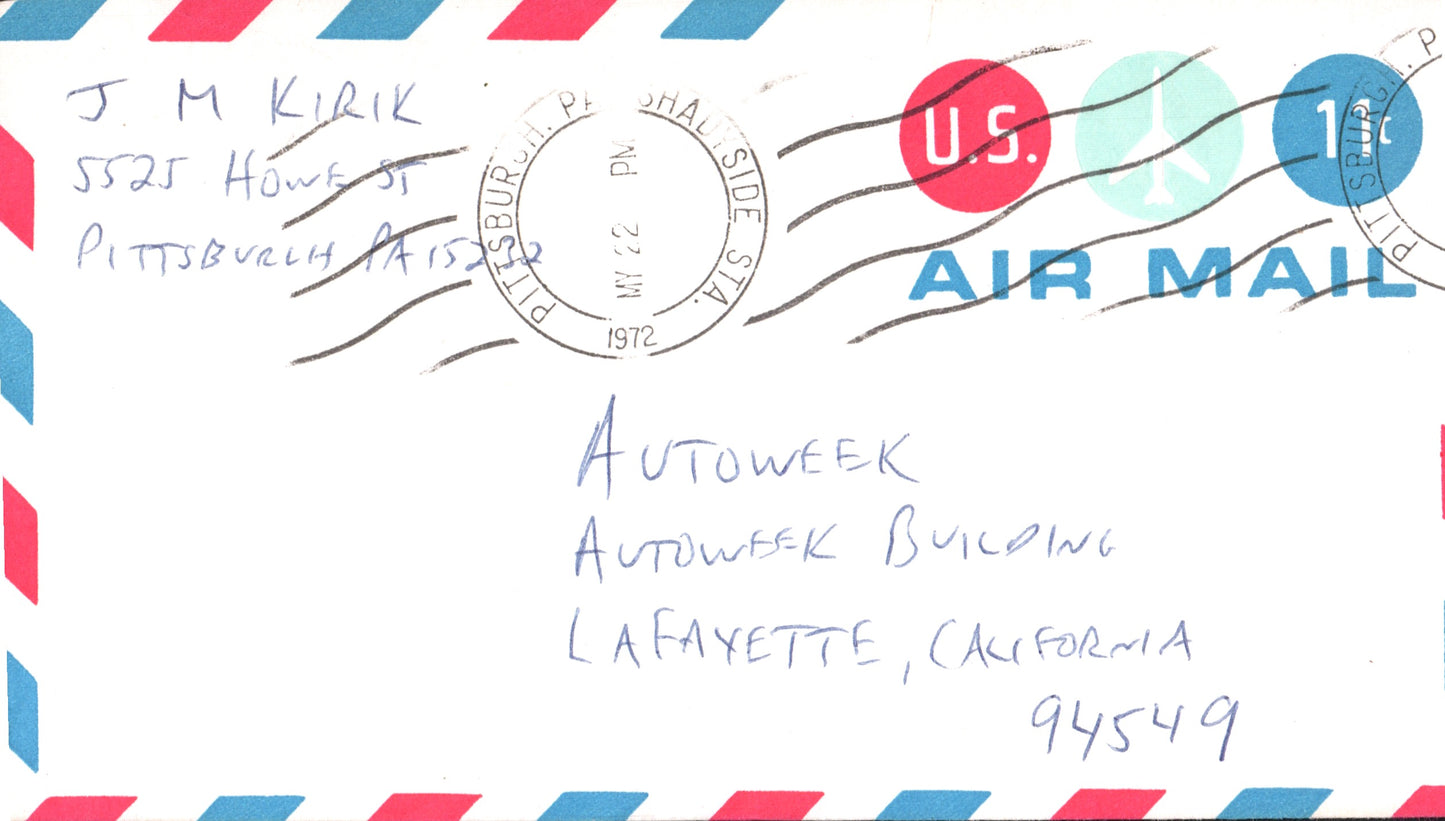 J M KIRIK
5525 HOWE ST
PITTSBURGH PA 15232
PITTSBURGH. PA SHADYSIDE STA.
MY 22 PM
1972
U.S. 11¢
AIR MAIL
PITTSBURGH. P
AUTOWEEK
AUTOWEEK BUILDING
LAFAYETTE, CALIFORNIA
94549